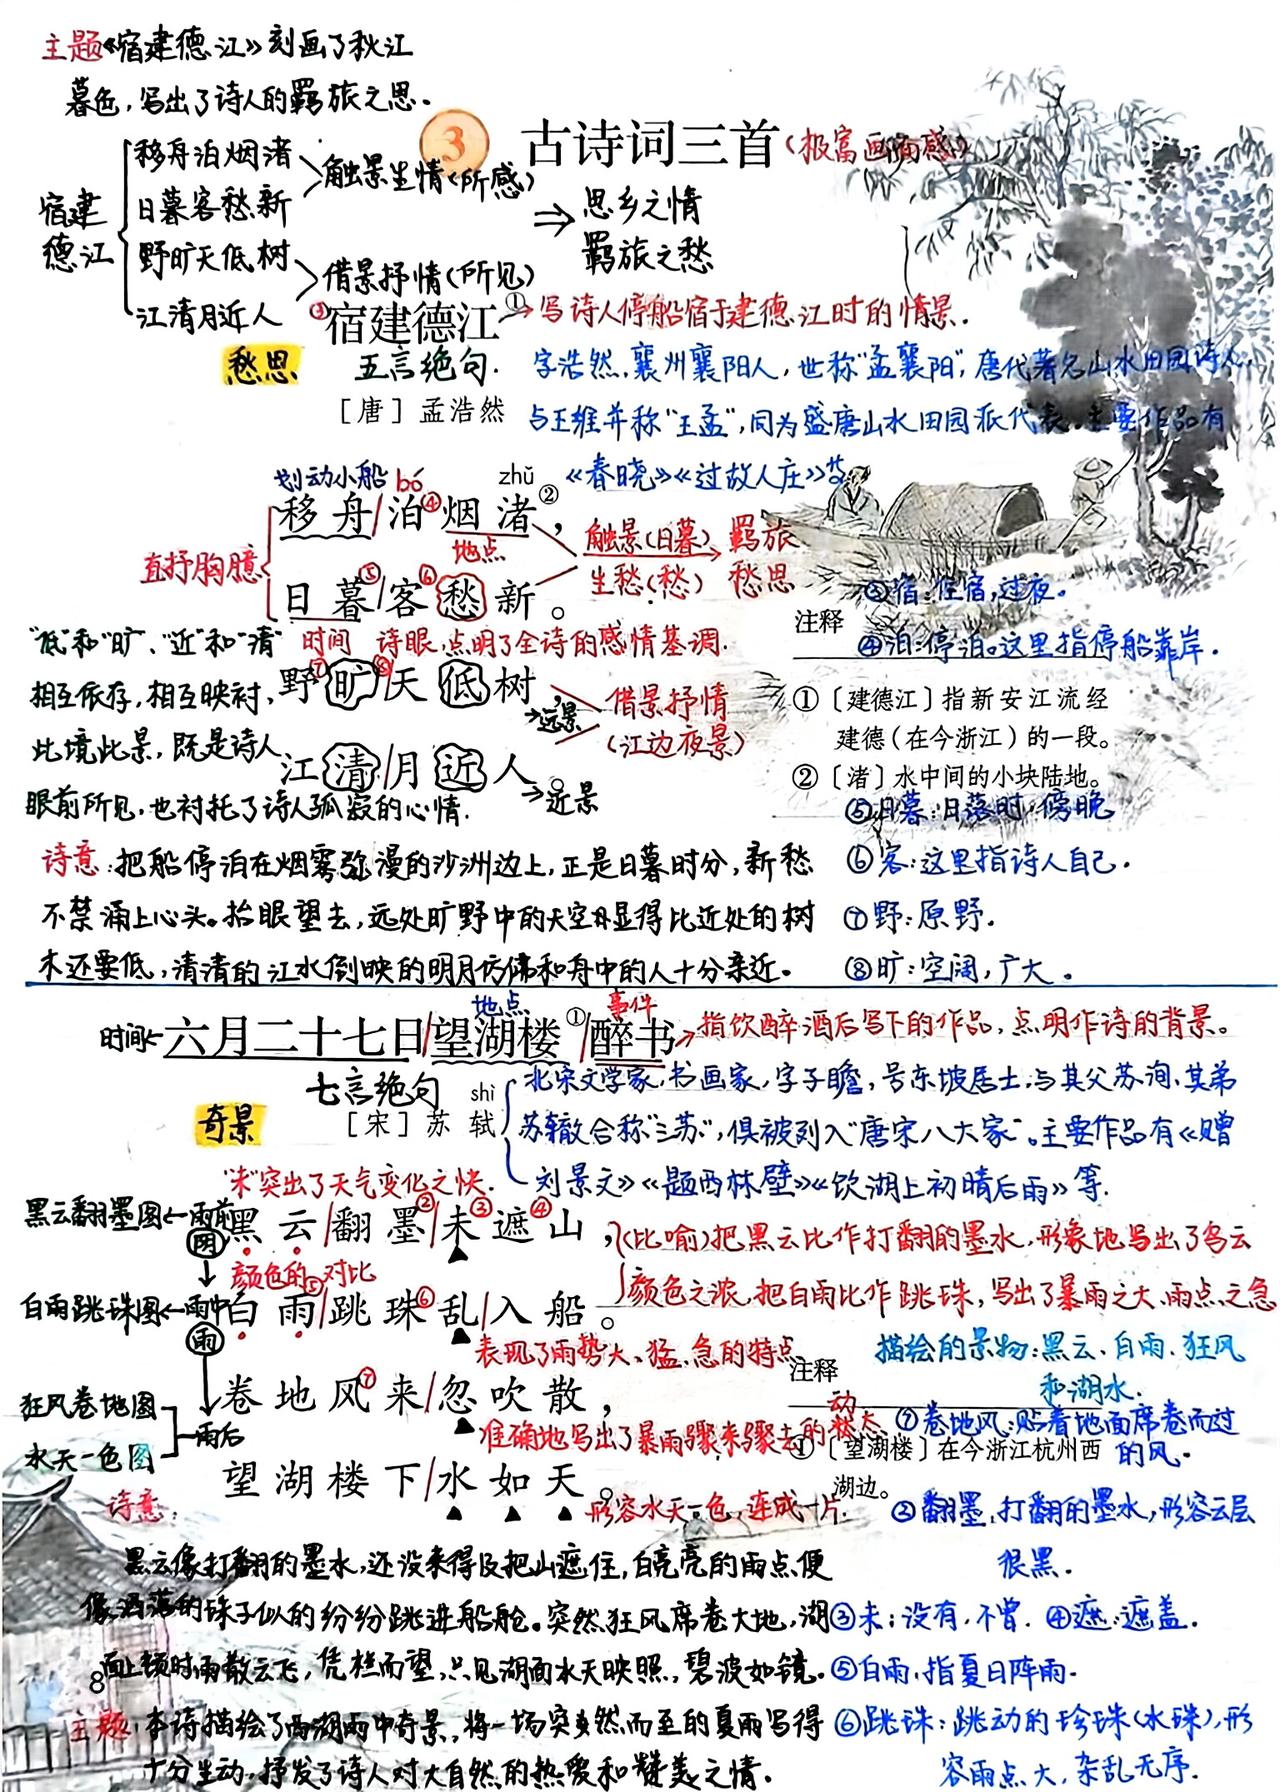 主题《宿建德江》刻画了秋江
暮色，写出了诗人的羁旅之思。
3 古诗词三首（极富画面感）
宿建德江
移舟泊烟渚
日暮客愁新
触景生情(所感)
野旷天低树
江清月近人
借景抒情(所见)
⇒ 思乡之情
羁旅之愁
③宿建德江①→写诗人停船宿于建德江时的情景.
愁思
五言绝句.
［唐］孟浩然
字浩然,襄州襄阳人,世称"孟襄阳",唐代著名山水田园诗人,
与王维并称"王孟",同为盛唐山水田园派代表.主要作品有
《春晓》《过故人庄》等
划动小船 bó zhǔ
移舟/泊④烟渚②，
地点
直抒胸臆
日暮⑤/客⑥愁新。
触景(日暮)→羁旅
生愁(愁) 愁思
时间 诗眼,点明了全诗的感情基调.
野⑦旷⑧/天低树，
→远景
江清/月近人。
→近景
借景抒情
(江边夜景)
"低"和"旷"、"近"和"清"
相互依存,相互映衬,
此境此景,既是诗人
眼前所见,也衬托了诗人孤寂的心情.
③宿:住宿,过夜。
注释
④泊:停泊。这里指停船靠岸.
①〔建德江〕指新安江流经
建德（在今浙江）的一段。
②〔渚〕水中间的小块陆地。
⑤日暮:日落时,傍晚
⑥客:这里指诗人自己.
⑦野:原野.
⑧旷:空阔,广大。
诗意:把船停泊在烟雾弥漫的沙洲边上,正是日暮时分,新愁
不禁涌上心头。抬眼望去,远处旷野中的天空显得比近处的树
木还要低,清清的江水倒映的明月仿佛和舟中的人十分亲近。
地点 事件
时间← 六月二十七日/望湖楼①/醉书→指饮醉酒后写下的作品,点明作诗的背景。
七言绝句
奇景
shì
［宋］苏轼
北宋文学家,书画家,字子瞻,号东坡居士,与其父苏洵、其弟
苏辙合称"三苏",俱被列入"唐宋八大家"。主要作品有《赠
刘景文》《题西林壁》《饮湖上初晴后雨》等.
"未"突出了天气变化之快.
黑云翻墨图←雨前
阴
黑云/翻墨②/未③遮④山，
(比喻)把黑云比作打翻的墨水,形象地写出了乌云
颜色之浓,把白雨比作跳珠,写出了暴雨之大、雨点之急
颜色的对比
白雨跳珠图←雨中
雨
白雨⑤/跳珠⑥乱/入船。
表现了雨势大、猛、急的特点
描绘的景物:黑云、白雨、狂风
和湖水.
卷地风⑦来/忽吹散，
准确地写出了暴雨骤来骤去的动态
狂风卷地图
水天一色图
雨后
望湖楼下/水如天。
形容水天一色,连成一片.
注释
⑦卷地风:贴着地面席卷而过
的风.
①〔望湖楼〕在今浙江杭州西
湖边。
②翻墨,打翻的墨水,形容云层
很黑.
③未:没有,不曾. ④遮:遮盖.
⑤白雨,指夏日阵雨.
⑥跳珠:跳动的珍珠(水珠),形
容雨点大,杂乱无序.
诗意:
黑云像打翻的墨水,还没来得及把山遮住,白亮亮的雨点便
像洒落的珠子似的纷纷跳进船舱。突然狂风席卷大地,湖
面上顿时雨散云飞,凭栏而望,只见湖面水天映照,碧波如镜.
主题:本诗描绘了西湖雨中奇景,将一场突然而至的夏雨写得
十分生动,抒发了诗人对大自然的热爱和赞美之情.
8